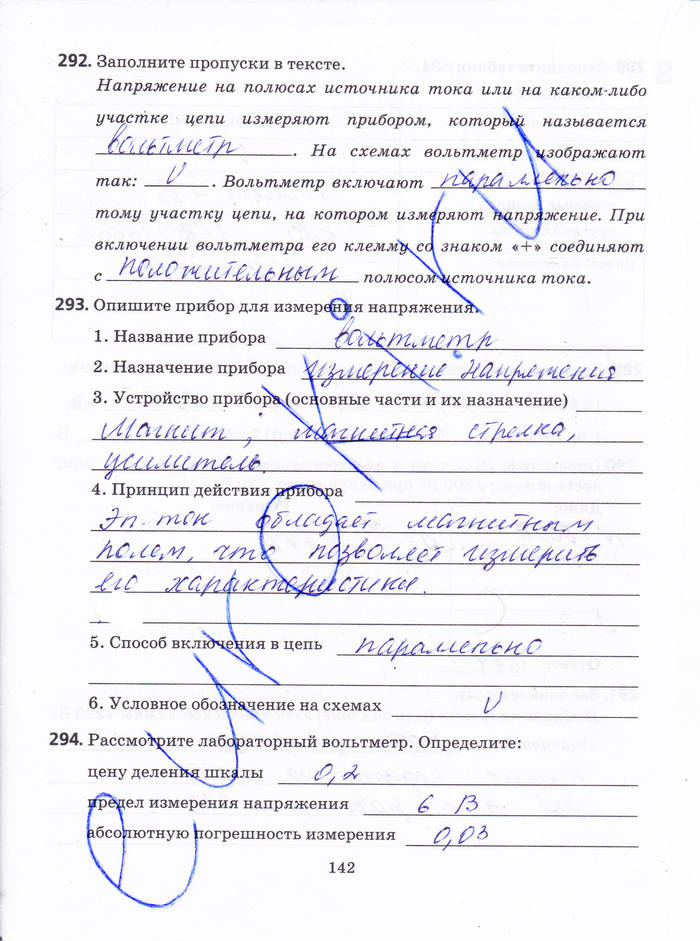 292. Заполните пропуски в тексте.
Напряжение на полюсах источника тока или на каком-либо
участке цепи измеряют прибором, который называется
вольтметр. На схемах вольтметр изображают
так: V. Вольтметр включают параллельно
тому участку цепи, на котором измеряют напряжение. При
включении вольтметра его клемму со знаком «+» соединяют
с положительным полюсом источника тока.
293. Опишите прибор для измерения напряжения.
1. Название прибора вольтметр
2. Назначение прибора измерение напряжения
3. Устройство прибора (основные части и их назначение)
Магнит, магнитная стрелка,
усилитель.
4. Принцип действия прибора
Эл ток обладает магнитным
полем, что позволяет измерить
его характеристики.
5. Способ включения в цепь параллельно
6. Условное обозначение на схемах V
294. Рассмотрите лабораторный вольтметр. Определите:
цену деления шкалы 0,2
предел измерения напряжения 6 В
абсолютную погрешность измерения 0,03
142